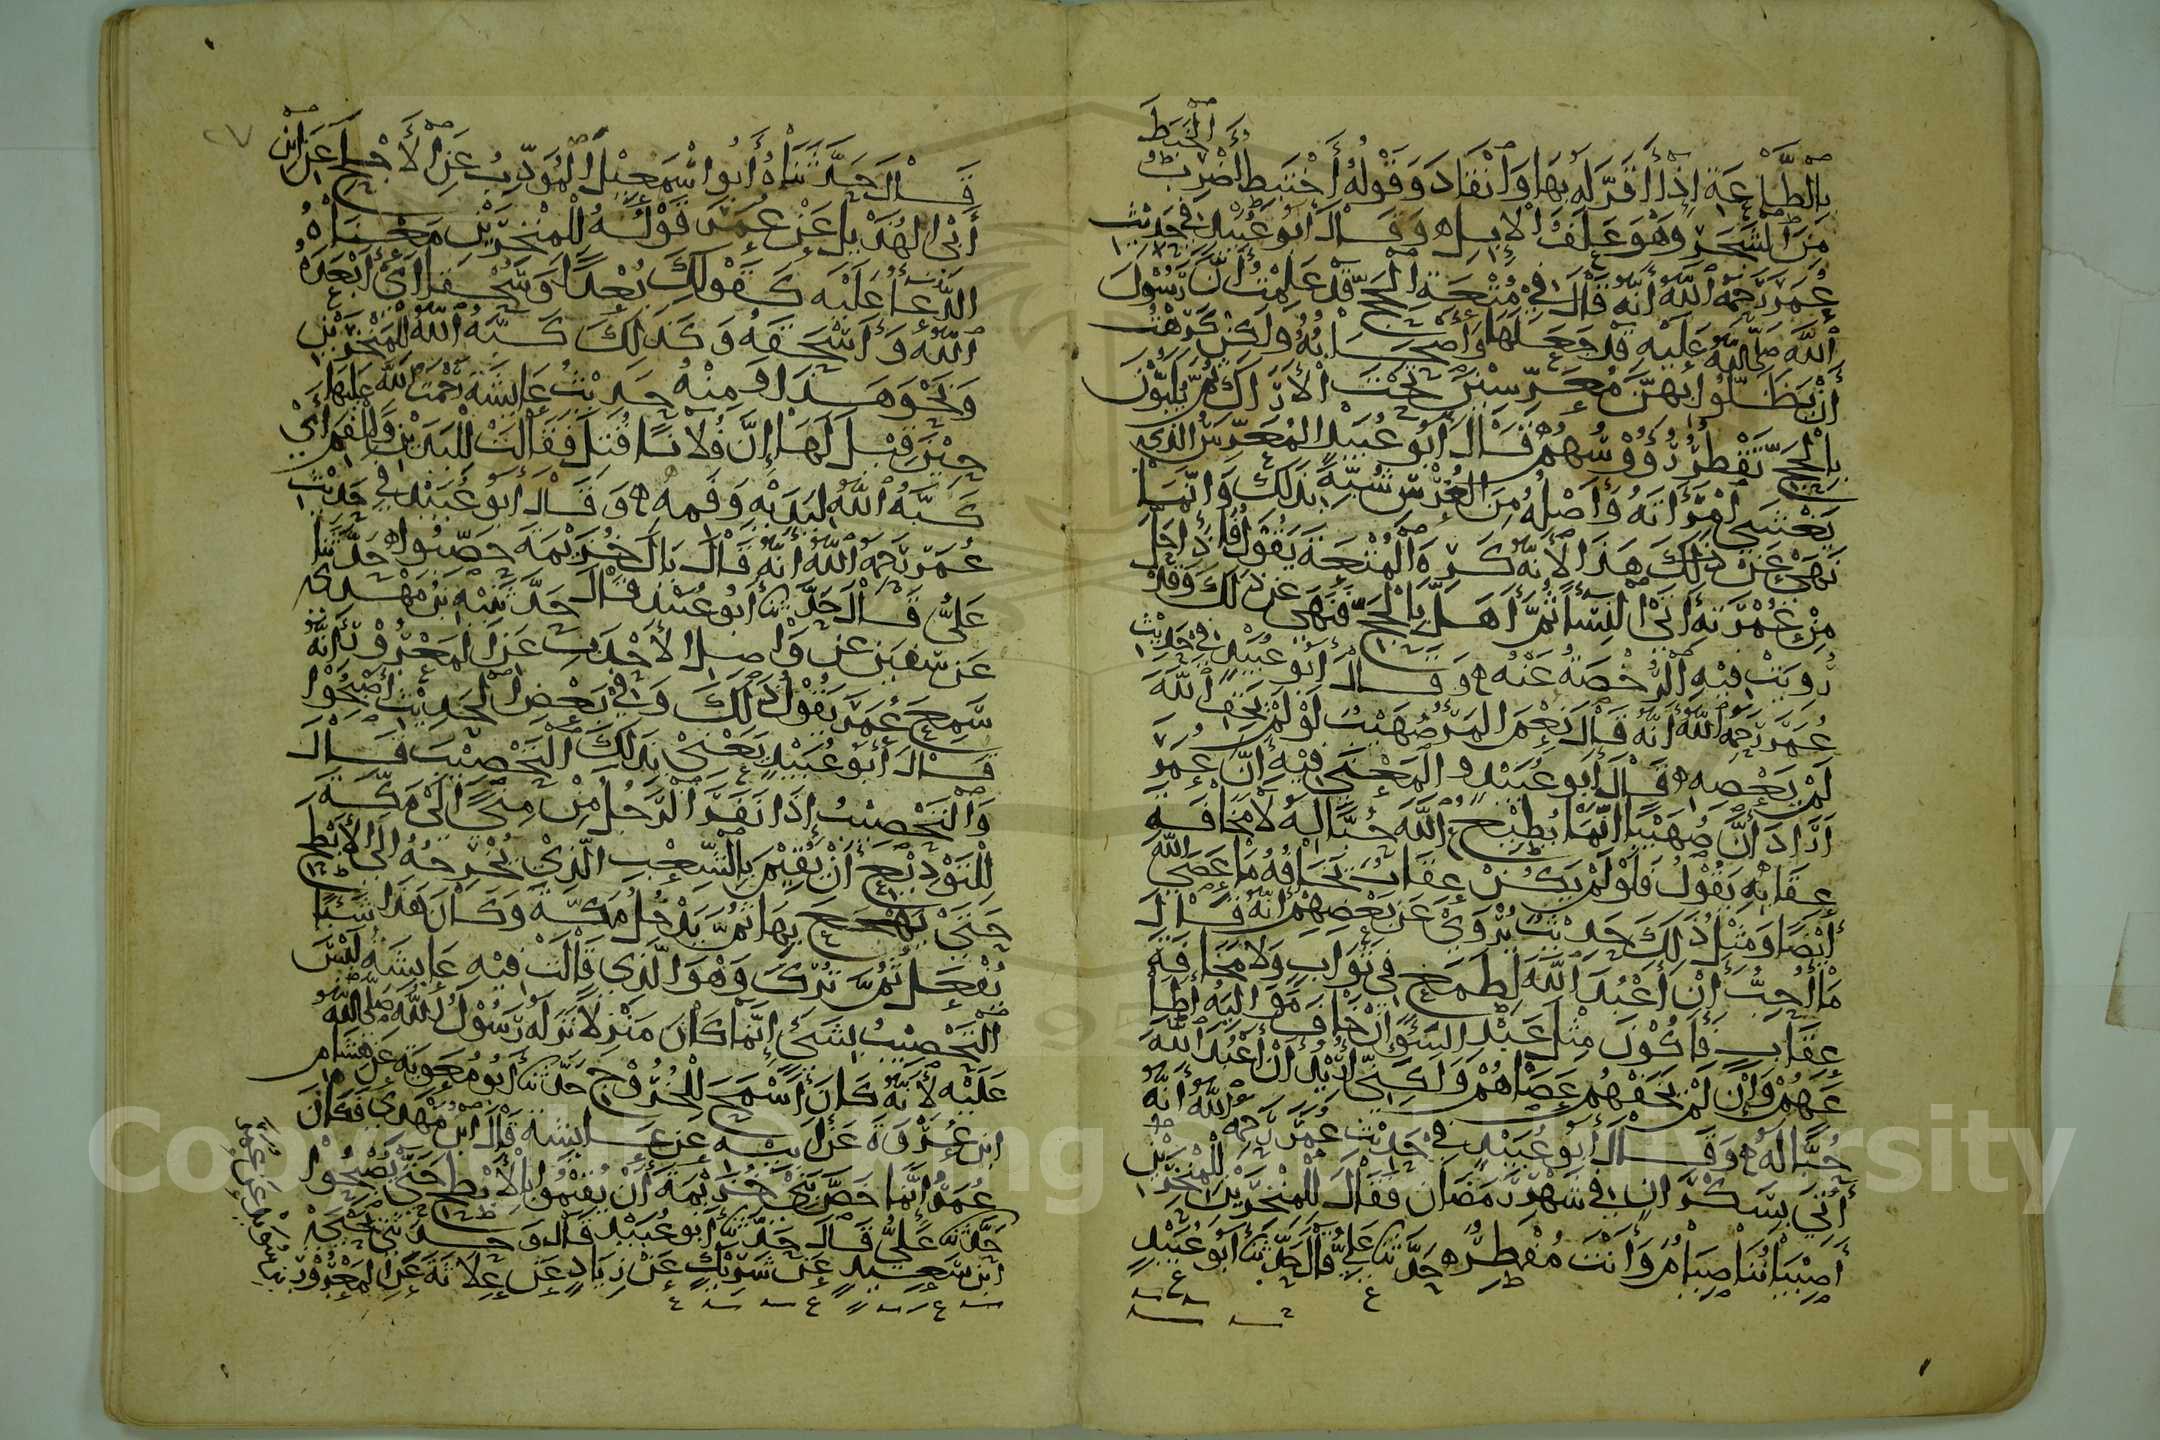 الْخَبَطَ
بِالطَّاعَةِ إِذَا أَقَرَّ لَهُ بِهَا وَانْقَادَ وَقَوْلُهُ أَخْتَبِطُ أَضْرِبُ
مِنَ الشَّجَرِ وَهُوَ عَلَفُ الْإِبِلِ ه وَقَالَ أَبُو عُبَيْدٍ فِي حَدِيثِ
عُمَرَ رَحِمَهُ اللهُ أَنَّهُ قَالَ فِي مُتْعَةِ الْحَجِّ قَدْ عَلِمْتُ أَنَّ رَسُولَ
اللهِ صَلَّى اللهُ عَلَيْهِ قَدْ فَعَلَهَا وَأَصْحَابُهُ وَلَكِنْ كَرِهْتُ
أَنْ يَظَلُّوا بِهِنَّ مُعَرِّسِينَ تَحْتَ الْأَرَاكِ ثُمَّ يُلَبُّونَ
بِالْحَجِّ تَقْطُرُ رُؤُوسُهُمْ ه قَالَ أَبُو عُبَيْدٍ الْمُعَرِّسُ الَّذِي
يَغْشَى امْرَأَتَهُ وَأَصْلُهُ مِنَ الْعُرْسِ شُبِّهَ بِذَلِكَ وَإِنَّمَا
نَهَى عَنْ ذَلِكَ هَذَا لِأَنَّهُ كَرِهَ الْمُتْعَةَ يَقُولُ فَإِذَا حَلَّ
مِنْ عُمْرَتِهِ أَتَى النِّسَاءَ ثُمَّ أَهَلَّ بِالْحَجِّ فَنَهَى عَنْ ذَلِكَ وَقَدْ
رُوِيَتْ فِيهِ الرُّخْصَةُ عَنْهُ ه وَقَالَ أَبُو عُبَيْدٍ فِي حَدِيثِ
عُمَرَ رَحِمَهُ اللهُ أَنَّهُ قَالَ نِعْمَ الْمَرْءُ صُهَيْبٌ لَوْ لَمْ يَخَفِ اللهَ
لَمْ يَعْصِهِ ه قَالَ أَبُو عُبَيْدٍ وَالْمَعْنَى فِيهِ أَنَّ عُمَرَ
أَرَادَ أَنَّ صُهَيْبًا إِنَّمَا يُطِيعُ اللهَ حُبًّا لَهُ لَا مَخَافَةَ
عِقَابِهِ يَقُولُ فَلَوْ لَمْ يَكُنْ عِقَابٌ يَخَافُهُ مَا عَصَى اللهَ
أَيْضًا وَمِثْلُ ذَلِكَ حَدِيثٌ يُرْوَى عَنْ بَعْضِهِمْ أَنَّهُ قَالَ
مَا أُحِبُّ أَنْ أَعْبُدَ اللهَ لِطَمَعٍ فِي ثَوَابٍ وَلَا مَخَافَةَ
عِقَابٍ فَأَكُونَ مِثْلَ عَبْدِ السَّوْءِ إِنْ خَافَ مَوَالِيَهُ أَطَا
عَهُمْ وَإِنْ لَمْ يَخَفْهُمْ عَصَاهُمْ وَلَكِنِّي أُرِيدُ أَنْ أَعْبُدَ اللهَ
حُبًّا لَهُ ه وَقَالَ أَبُو عُبَيْدٍ فِي حَدِيثِ عُمَرَ رَحِمَهُ اللهُ أَنَّهُ
أُتِيَ بِسَكْرَانٍ فِي شَهْرِ رَمَضَانَ فَقَالَ لِلْمَنْخِرَيْنِ لِلْمَنْخِرَيْنِ
أَصِبْيَانُنَا صِيَامٌ وَأَنْتَ مُفْطِرٌ ه حَدَّثَنَا عَلِيٌّ قَالَ حَدَّثَنَا أَبُو عُبَيْدٍ
قَالَ حَدَّثَنَاهُ أَبُو إِسْمَعِيلَ الْمُؤَدِّبُ عَنِ الْأَجْلَحِ عَنِ ابْنِ
أَبِي الْهُذَيْلِ عَنْ عُمَرَ قَوْلُهُ لِلْمَنْخِرَيْنِ مَعْنَاهُ
الدُّعَاءُ عَلَيْهِ كَقَوْلِكَ بُعْدًا وَسُحْقًا أَيْ أَبْعَدَهُ
اللهُ وَأَسْحَقَهُ وَكَذَلِكَ كَبَّهُ اللهُ لِلْمَنْخِرَيْنِ
وَنَحْوَ هَذَا وَمِنْهُ حَدِيثُ عَايِشَةَ رَحْمَتُ اللهِ عَلَيْهَا
حِينَ قِيلَ لَهَا إِنَّ فُلَانًا قُتِلَ فَقَالَتْ لِلْيَدَيْنِ وَلِلْفَمِ أَيْ
كَبَّهُ اللهُ لِيَدَيْهِ وَفَمِهِ ه وَقَالَ أَبُو عُبَيْدٍ فِي حَدِيثِ
عُمَرَ رَحِمَهُ اللهُ أَنَّهُ قَالَ يَالَ خُزَيْمَةَ حَصِّبُوا ه حَدَّثَنَا
عَلِيٌّ قَالَ حَدَّثَنَا أَبُو عُبَيْدٍ قَالَ حَدَّثَنِيهِ ابْنُ مَهْدِيٍّ
عَنْ سُفْيَنَ عَنْ وَاصِلٍ الْأَحْدَبِ عَنِ الْمَعْرُورِ أَنَّهُ
سَمِعَ عُمَرَ يَقُولُ ذَلِكَ وَفِي بَعْضِ الْحَدِيثِ أَصْبِحُوا
قَالَ أَبُو عُبَيْدٍ يَعْنِي بِذَلِكَ التَّحْصِيبَ قَالَ
وَالتَّحْصِيبُ إِذَا نَفَرَ الرَّجُلُ مِنْ مِنًى إِلَى مَكَّةَ
لِلتَّوْدِيعِ أَنْ يُقِيمَ بِالشِّعْبِ الَّذِي يُخْرِجُهُ إِلَى الْأَبْطَحِ
حَتَّى يَهْجَعَ بِهَا ثُمَّ يَدْخُلَ مَكَّةَ وَكَانَ هَذَا شَيْئًا
يُفْعَلُ ثُمَّ تُرِكَ وَهُوَ الَّذِي قَالَتْ فِيهِ عَايِشَةُ لَيْسَ
التَّحْصِيبُ بِشَيْءٍ إِنَّمَا كَانَ مَنْزِلًا نَزَلَهُ رَسُولُ اللهِ صَلَّى اللهُ
عَلَيْهِ لِأَنَّهُ كَانَ أَسْمَحَ لِلْخُرُوجِ حَدَّثَنَا أَبُو مُعَوِيَةَ عَنْ هِشَامِ
ابْنِ عُرْوَةَ عَنْ أَبِيهِ عَنْ عَايِشَةَ قَالَ ابْنُ مَهْدِيٍّ فَكَانَ
عُمَرُ إِنَّمَا حَصَّ بَنِي خُزَيْمَةَ أَنْ يُقِيمُوا بِالْأَبْطَحِ حَتَّى يُصْبِحُوا
حَدَّثَنَا عَلِيٌّ قَالَ حَدَّثَنَا أَبُو عُبَيْدٍ قَالَ وَحَدَّثَنِي يَحْيَى
ابْنُ سَعِيدٍ عَنْ شَرِيكٍ عَنْ زِيَادِ عَنْ عِلَاثَةَ عَنِ الْمَعْرُورِ